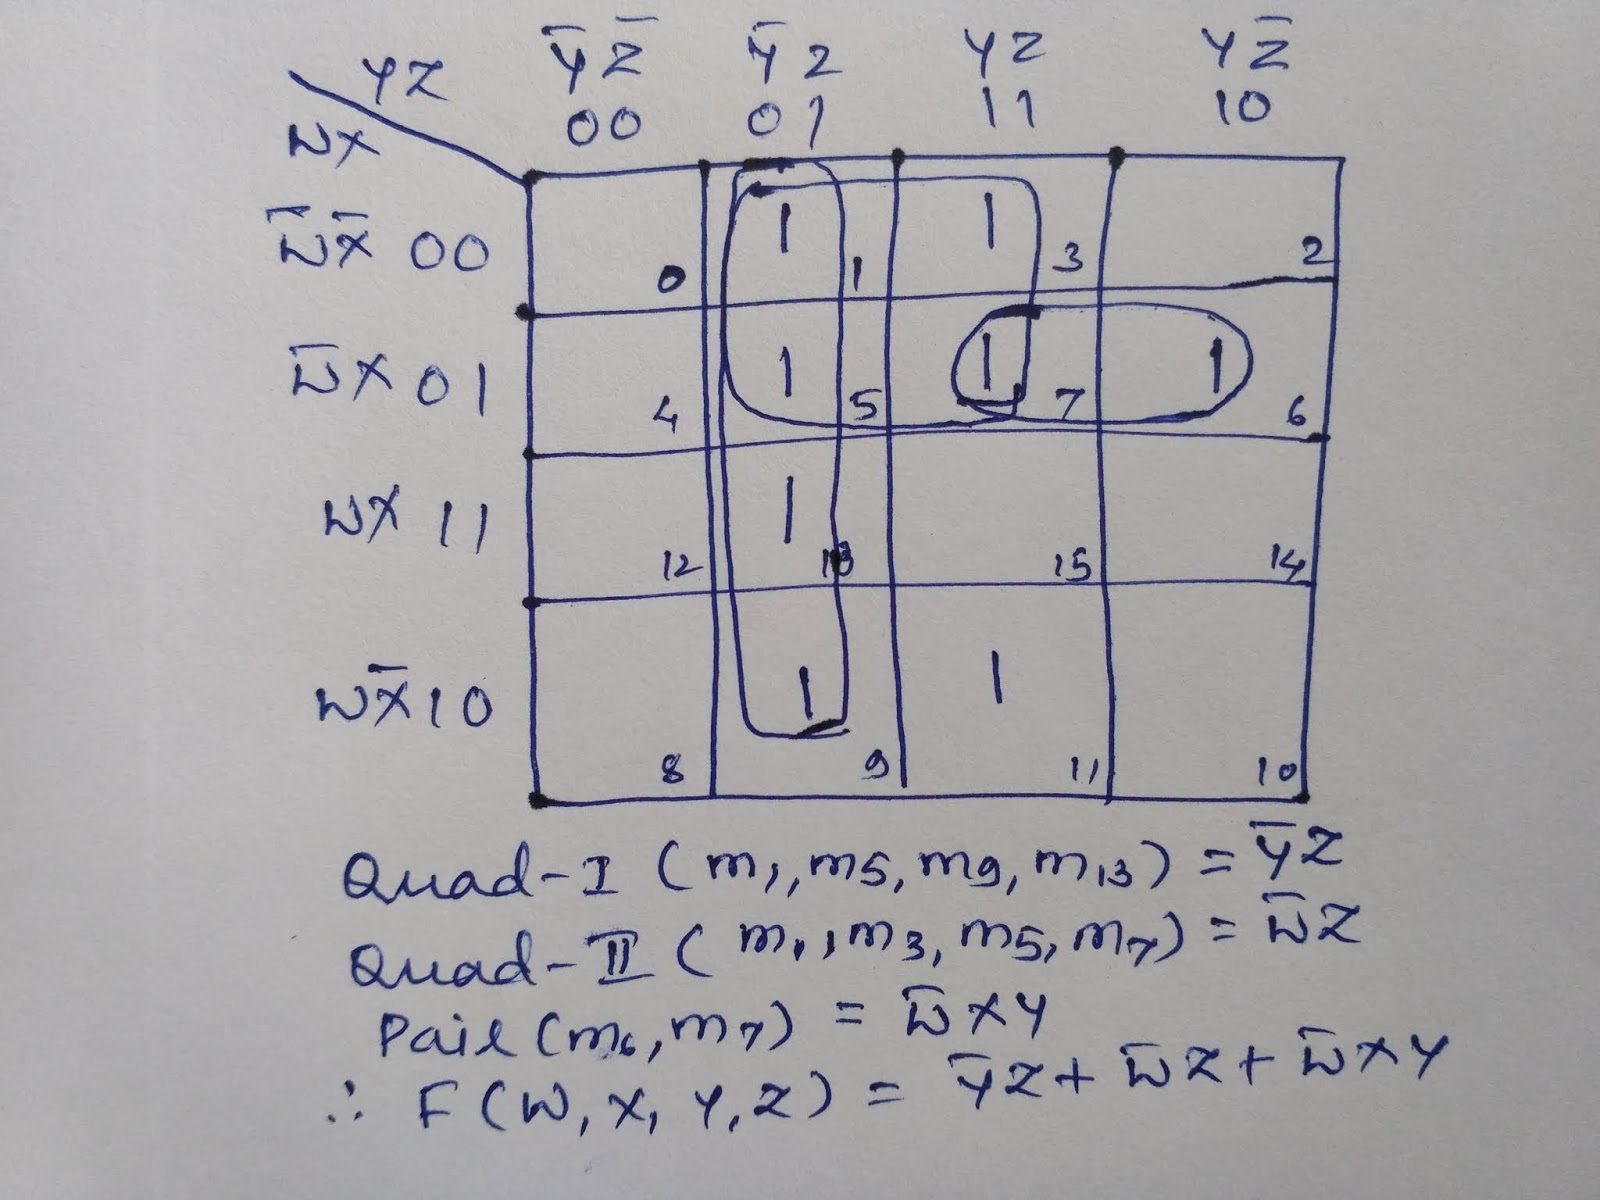 YZ Y̅Z̅ Y̅Z YZ YZ̅
WX 00 01 11 10
W̅X̅ 00 0 1 1 1 3 2
W̅X 01 4 1 5 1 7 1 6
WX 11 12 1 13 15 14
WX̅ 10 8 1 9 1 11 10
Quad-I (m1, m5, m9, m13) = Y̅Z
Quad-II (m1, m3, m5, m7) = W̅Z
Pair (m6, m7) = W̅XY
∴ F(W, X, Y, Z) = Y̅Z + W̅Z + W̅XY